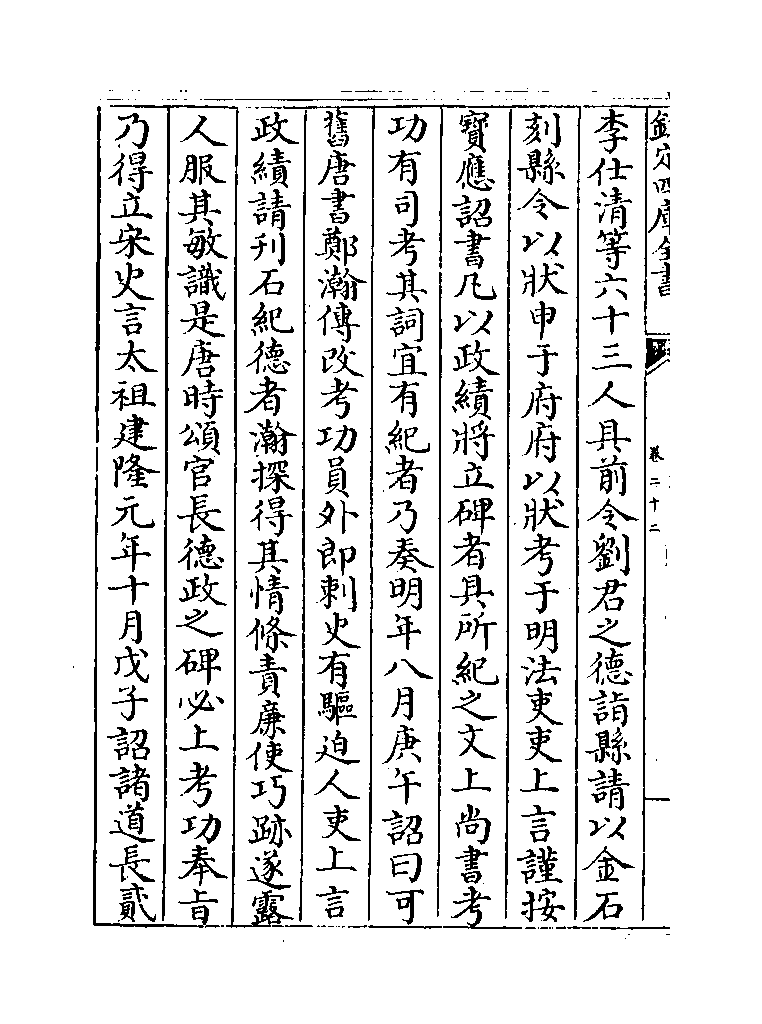 欽定四庫全書
卷二十二
李仕清等六十三人具前令劉君之德詣縣請以金石
刻縣令以狀申于府府以狀考于明法吏吏上言謹按
寶應詔書凡以政績將立碑者具所紀之文上尚書考
功有司考其詞宜有紀者乃奏明年八月庚午詔曰可
舊唐書鄭瀚傳改考功員外郎刺史有驅迫人吏上言
政績請刋石紀德者瀚探得其情條責廉使巧跡遂露
人服其敏識是唐時頌官長德政之碑必上考功奉旨
乃得立宋史言太祖建隆元年十月戊子詔諸道長貳